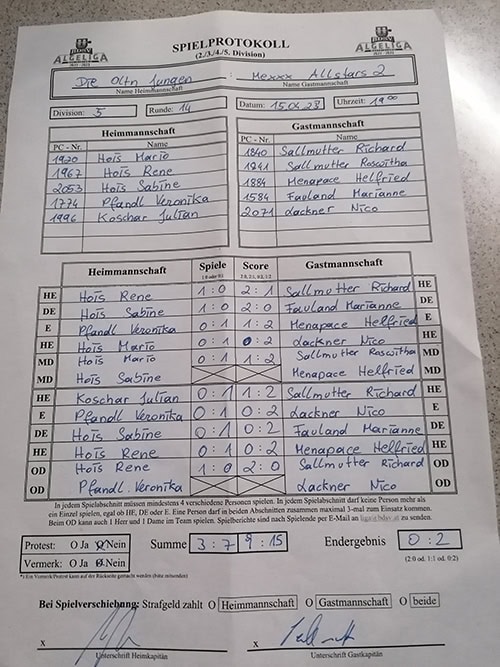 ALGELIGA
SPIELPROTOKOLL
(2./3./4./5. Division)
ALGELIGA
Die Oltn Jungen : Mexxx Allstars 2
Name Heimmannschaft Name Gastmannschaft
Division: 5 Runde: 14 Datum: 15.04.23 Uhrzeit: 19⁰⁰
Heimmannschaft Gastmannschaft
PC - Nr. Name PC - Nr. Name
1920 Hois Mario 1840 Sallmutter Richard
1967 Hois Rene 1841 Sallmutter Roswitha
2053 Hois Sabine 1884 Menapace Helfried
1774 Pfandl Veronika 1584 Fauland Marianne
1996 Koschar Julian 2071 Lackner Nico
Heimmannschaft Spiele Score Gastmannschaft
HE Hois Rene 1:0 2:1 Sallmutter Richard HE
DE Hois Sabine 1:0 2:0 Fauland Marianne DE
E Pfandl Veronika 0:1 1:2 Menapace Helfried E
HE Hois Mario 0:1 0:2 Lackner Nico HE
MD Hois Mario 0:1 1:2 Sallmutter Roswitha MD
MD Hois Sabine Menapace Helfried MD
HE Koschar Julian 0:1 1:2 Sallmutter Richard HE
E Pfandl Veronika 0:1 0:2 Lackner Nico E
DE Hois Sabine 0:1 0:2 Fauland Marianne DE
HE Hois Rene 0:1 0:2 Menapace Helfried HE
OD Hois Rene 1:0 2:0 Sallmutter Richard OD
OD Pfandl Veronika Lackner Nico OD
In jedem Spielabschnitt müssen mindestens 4 verschiedene Personen spielen. In jedem Spielabschnitt darf keine Person mehr als
ein Einzel spielen, egal ob HE, DE oder E. Eine Person darf in beiden Abschnitten zusammen maximal 3-mal zum Einsatz kommen.
Beim OD kann auch 1 Herr und 1 Dame im Team spielen. Spielberichte sind nach Spielende per E-Mail an zu senden.
Protest: O Ja O Nein Summe 3:7 9:15 Endergebnis 0:2
Vermerk: O Ja O Nein (2:0 od. 1:1 od. 0:2)
*) Ein Vermerk/Protest kann auf der Rückseite gemacht werden (bitte mitsenden)
Bei Spielverschiebung: Strafgeld zahlt O Heimmannschaft O Gastmannschaft O beide
x x
Unterschrift Heimkapitän Unterschrift Gastkapitän